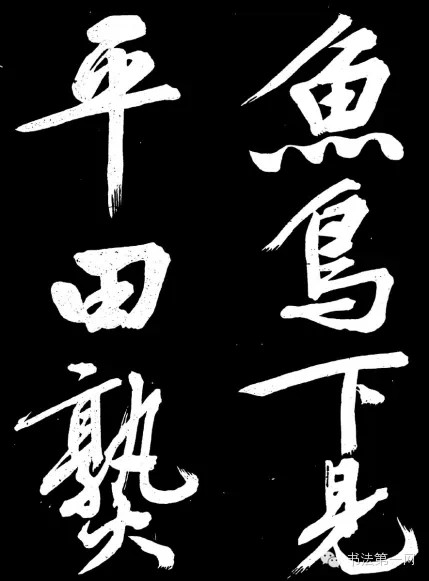 魚鳥下見
平田熟
书法第一网